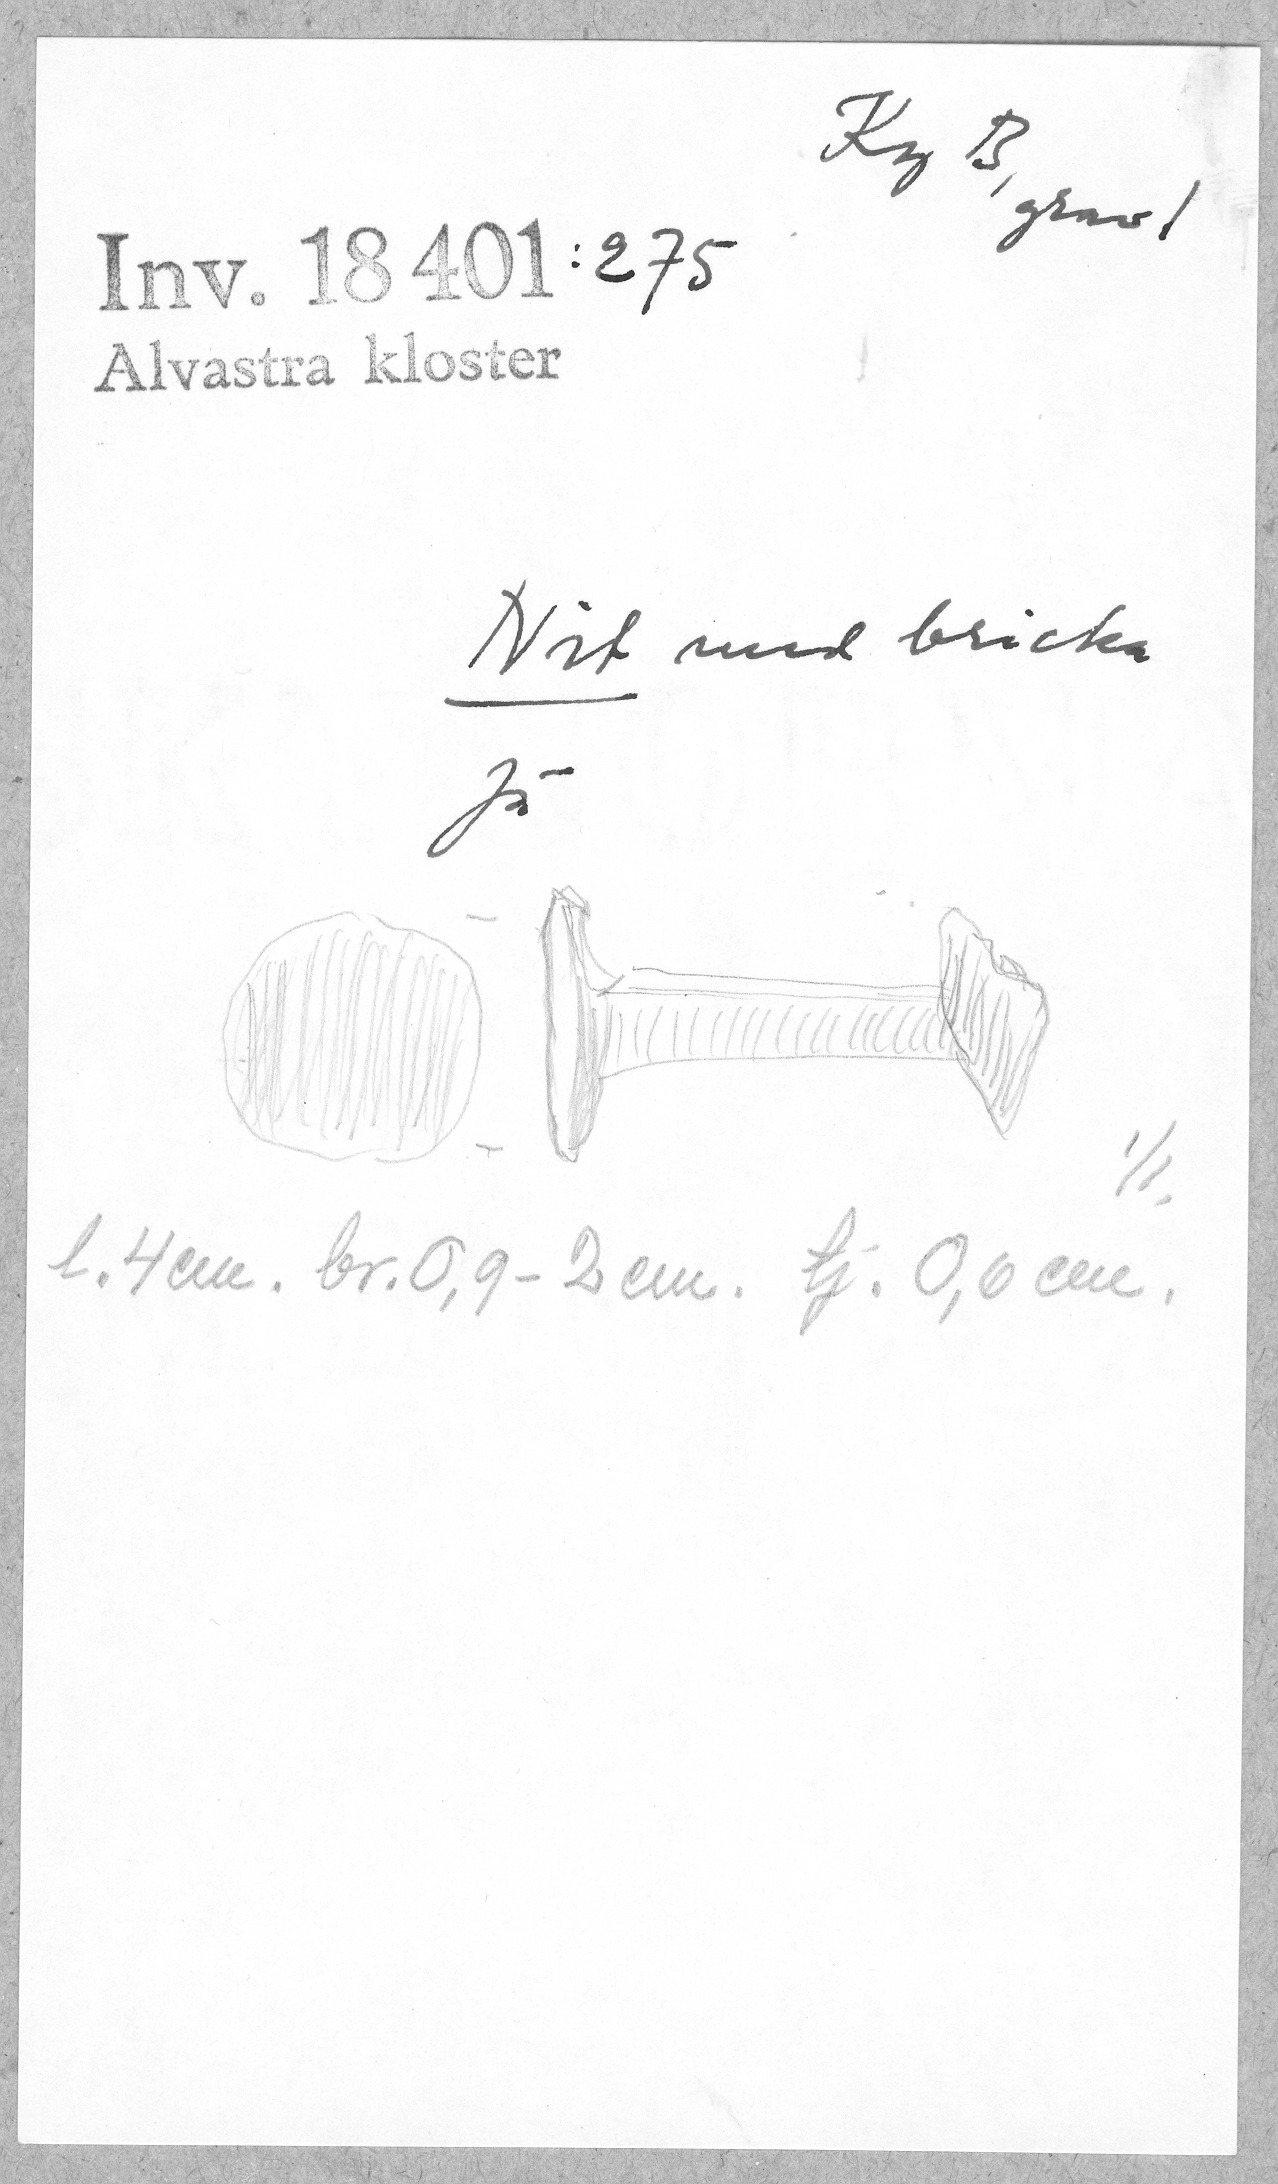 Kg B,
grav 1
Inv. 18 401:275
Alvastra kloster
Nit med bricka
Jä
1/1.
l. 4 cm. br. 0,9 - 2 cm. tj. 0,6 cm.